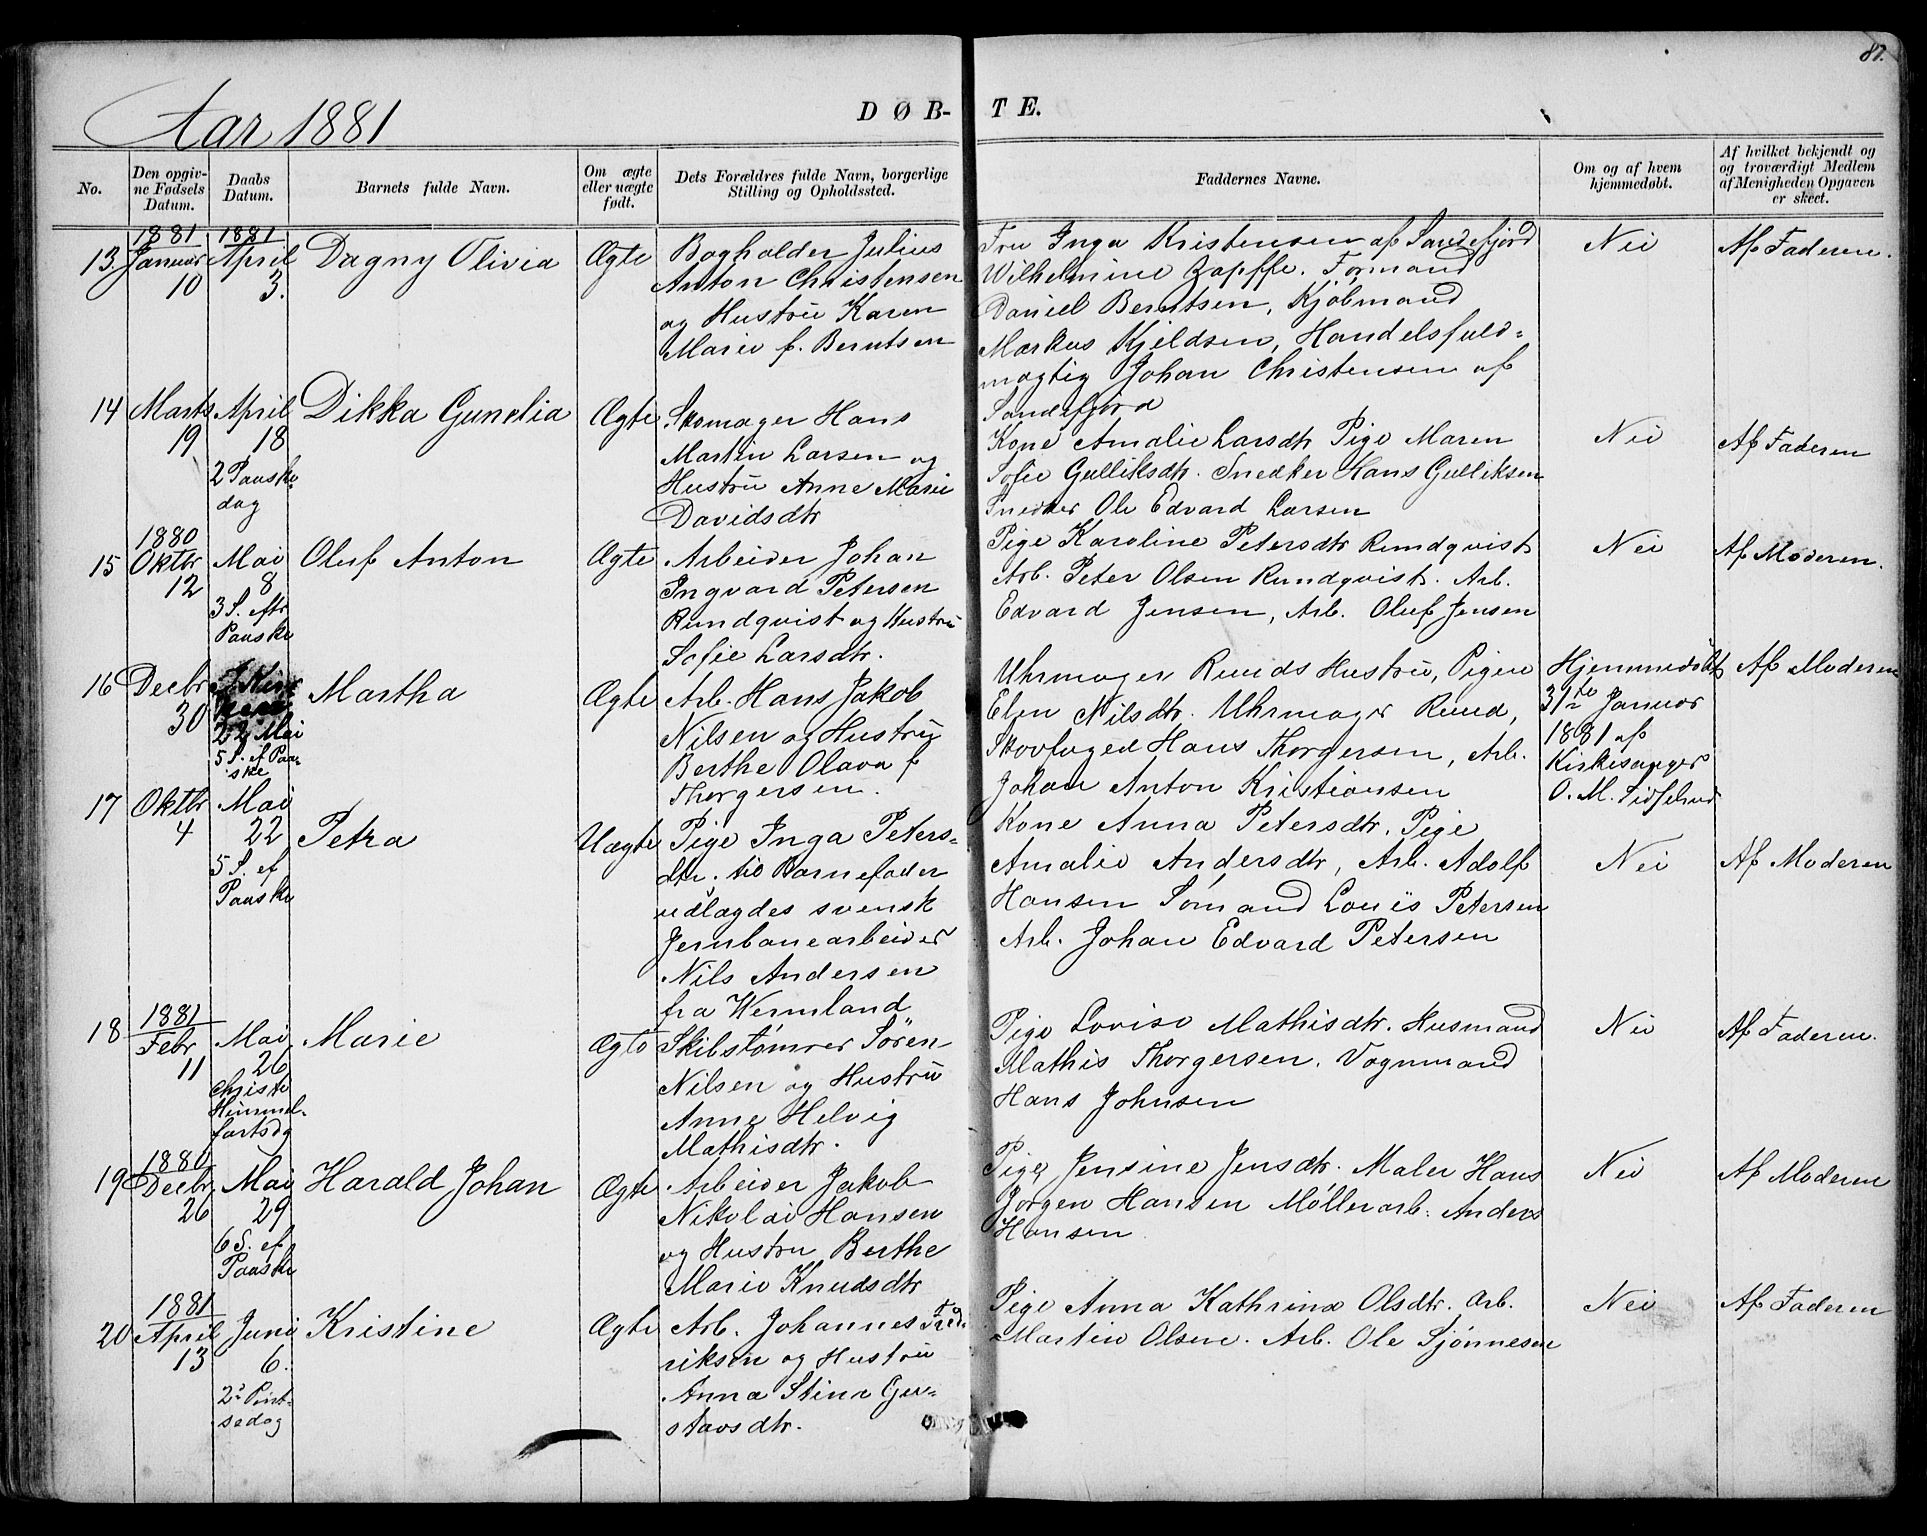 87.
Aar 1881
DØB-
TE.
No.
Den opgiv-
ne Fødsels
Datum.
Daabs
Datum.
Barnets fulde Navn.
Om ægte
eller uægte
født.
Dets Forældres fulde Navn, borgerlige
Stilling og Opholdssted.
Faddernes Navne.
Om og af hvem
hjemmedøbt.
Af hvilket bekjendt og
og troværdigt Medlem
af Menigheden Opgaven
er skeet.
13,
1881
Januar
10
1881
April
3.
Dagny Olivia
Ægte
Bogholder Julius
Anton Christensen
og Hustru Karen
Marie f. Berntsen
Fru Inga Kristensen af Sandefjord
Wilhelmine Zapffe. Formand
Daniel Berntsen, Kjøbmand
Markus Kjeldsen, Handelsfuld=
mægtig Johan Christensen af
Sandefjord
Nei
Af Faderen.
14
Marts
19
April
18
2 Paaske
dag
Dikka Gunelia
Ægte
Skomager Hans
Martin Larsen og
Hustru Anne Marie
Davidsdtr
Kone Amalie Larsdtr Pige Maren
Sofie Gulliksdtr. Snedker Hans Gulliksen
Snedker Ole Edvard Larsen
Nei
Af Faderen
15
1880
Oktbr
12
Mai
8
3 S. eftr
Paaske
Oluf Anton
Ægte
Arbeider Johan
Ingvard Petersen
Rundqvist og Hustru
Sofie Larsdtr.
Pige Karoline Petersdtr Rundqvist
Arb. Peter Olsen Rundqvist. Arb.
Edvard Jensen, Arb. Oluf Jensen
Nei
Af Moderen.
16
Decbr
30
22 Mai
5 S. ef Paa-
ske
Martha
Ægte
Arb. Hans Jakob
Nilsen og Hustru
Berthe Olava f
Thorgersen.
Uhrmager Ruuds Hustru, Pigen
Elen Nilsdtr. Uhrmager Ruud,
Skovfoged Hans Thorgersen, Arb.
Johan Anton Kristiansen
Hjemmedøbt
31te Januar
1881 af
Kirkesanger
O. M.
Af Moderen
17
Oktbr
4
Mai
22
5 S. ef
Paaske
Petra
Uægte
Pige Inga Peters=
dtr. til Barnefader
udlægdes svensk
Jernbanearbeider
Nils Andersen
fra Wermland
Kone Anna Petersdtr. Pige
Amalie Andersdtr, Arb. Adolf
Hansen Sømand Louis Petersen
Arb. Johan Edvard Petersen
Nei
Af Moderen
18
1881
Febr
11
Mai
26
Christi
Himmel-
fartsdg
Marie
Ægte
Skibstømrer Sören
Nilsen og Hustru
Anne Helvig
Mathisdtr.
Pige Lovise Mathisdtr. Husmand
Mathis Thorgersen. Vognmand
Hans Johnsen
Nei
Af Faderen.
19
1880
Decbr
26
Mai
29
6 S. ef
Paaske
Harald Johan
Ægte
Arbeider Jakob
Nikolai Hansen
og Hustru Berthe
Marie Knudsdtr
Pige Jensine Jensdtr. Maler Hans
Jørgen Hansen Møllerarb. Anders
Hansen
Nei
Af Moderen
20
1881
April
13
Juni
6.
2 Pint-
sedag
Kristine
Ægte
Arb. Johannes Fred-
riksen og Hustru
Anna Stina Gu-
stavsdtr.
Pige Anna Kathrina Olsdtr. Arb.
Martin Olsen. Arb. Ole Sjønnesen
Nei
Af Faderen